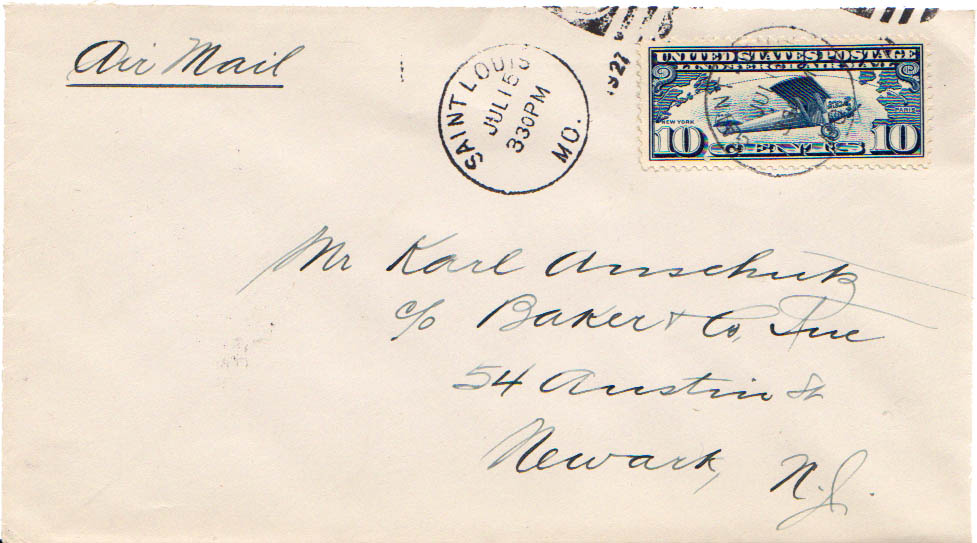 Air Mail
SAINT LOUIS
JUL 15
330 PM
MO.
1927
UNITED STATES POSTAGE
LINDBERGH AIR MAIL
NEW YORK
PARIS
10 CENTS 10
Mr Karl Anschutz
c/o Baker & Co, Inc
54 Austin St
Newark, N.J.